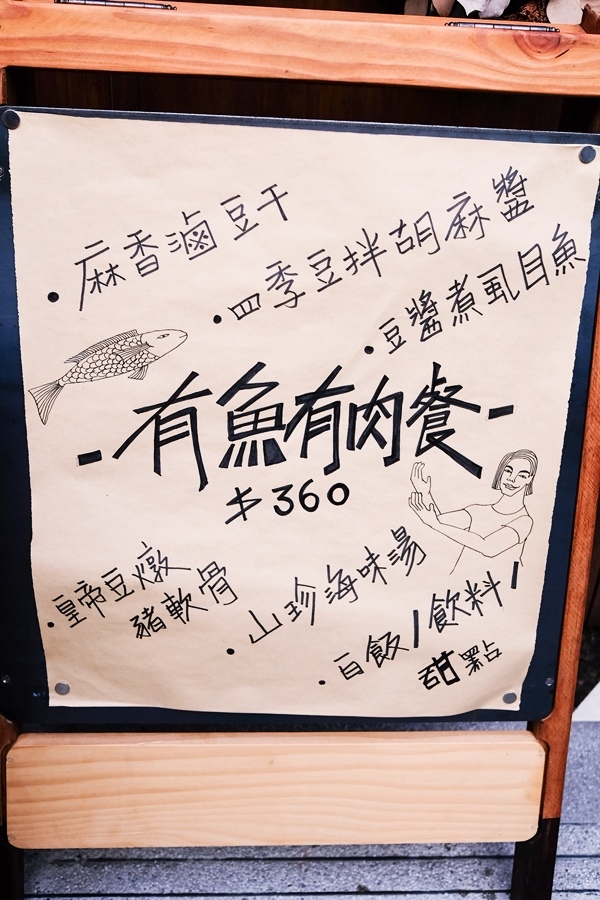 • 麻香滷豆干
• 四季豆拌胡麻醬
• 豆醬煮虱目魚
-有魚有肉餐-
$360
• 皇帝豆燉
豬軟骨
• 山珍海味湯
• 白飯/飲料/
甜點